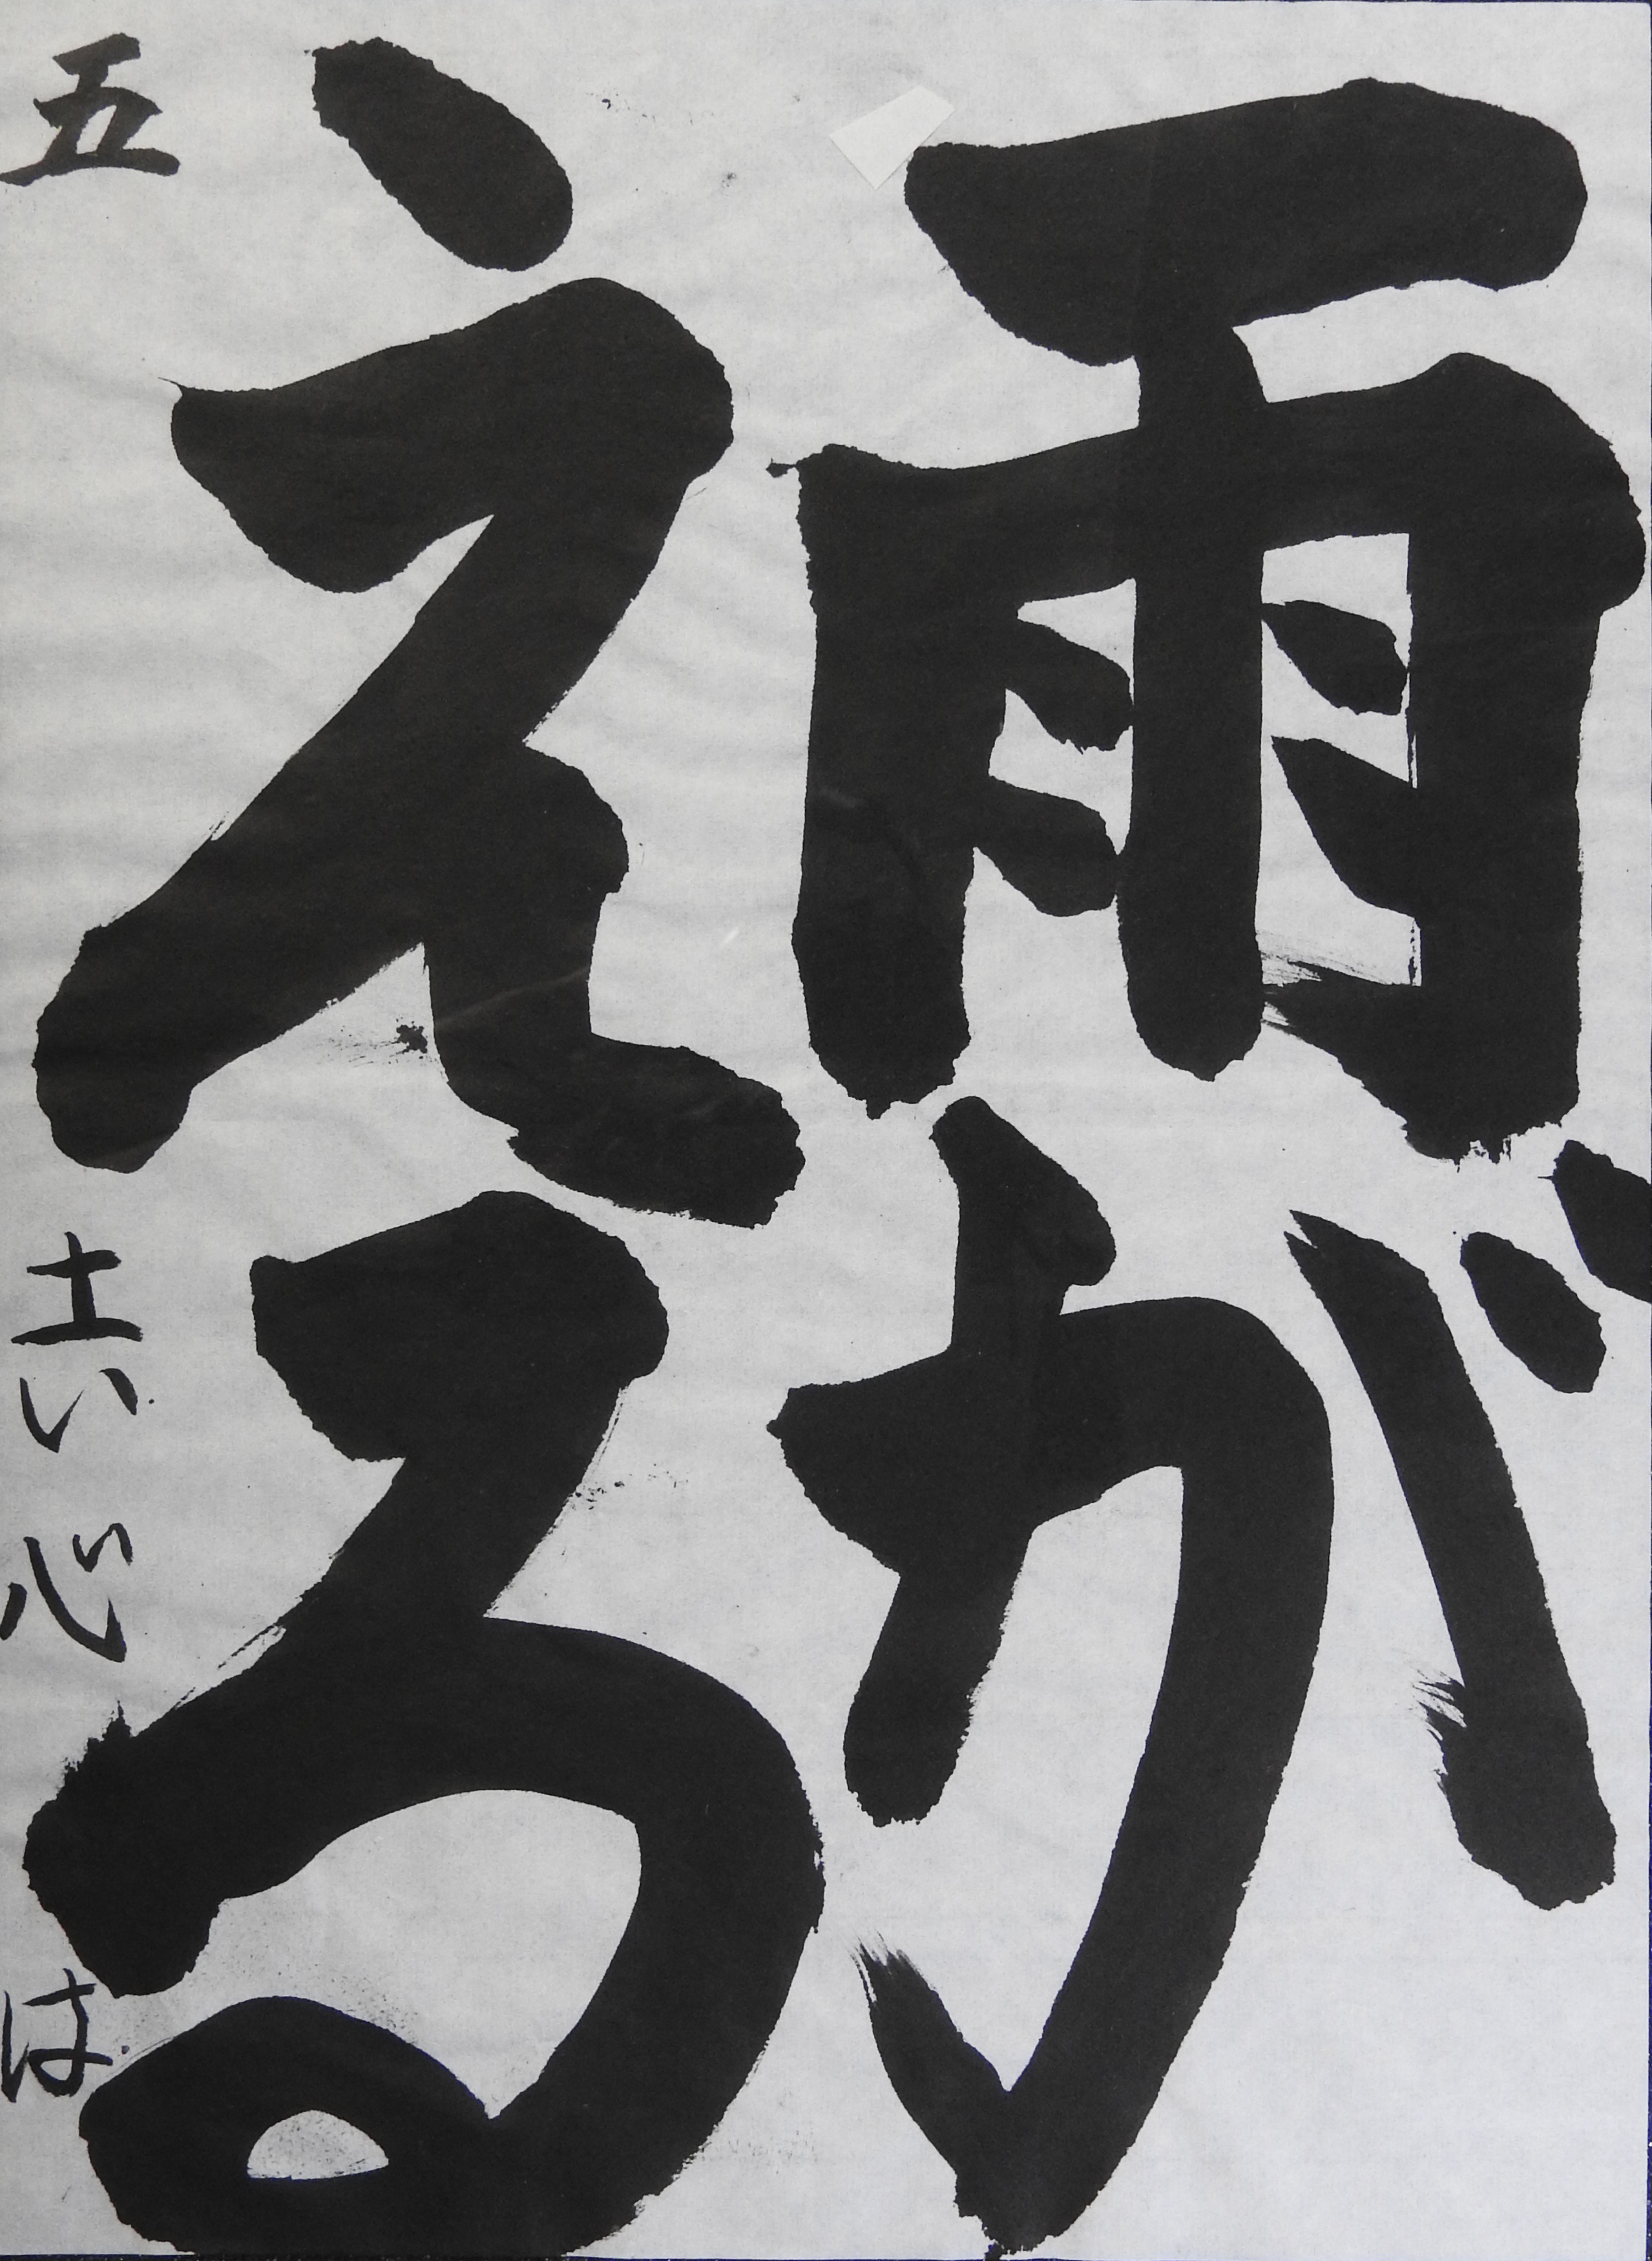 雨が
える
五 土い心 は